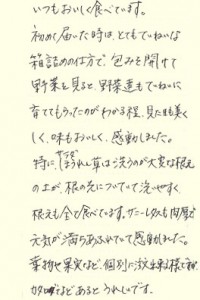 いつもおいしく食べています。
初めて届いた時は、とてもていねいな
箱詰めの仕方で、包みを開けて
野菜を見ると、野菜達もていねいに
育ててもらったのがわかる程、見た目も美し
しく、味もおいしく、感動しました。
特に、ほうれん草は洗うのが大変な根元
の土が、根の先についていて洗いやすく
根元も全て食べています。サニーレタスも肉厚で
元気が満ちあふれていて感動しました。
葉物や果実など、個別に
などあるとうれしいです。